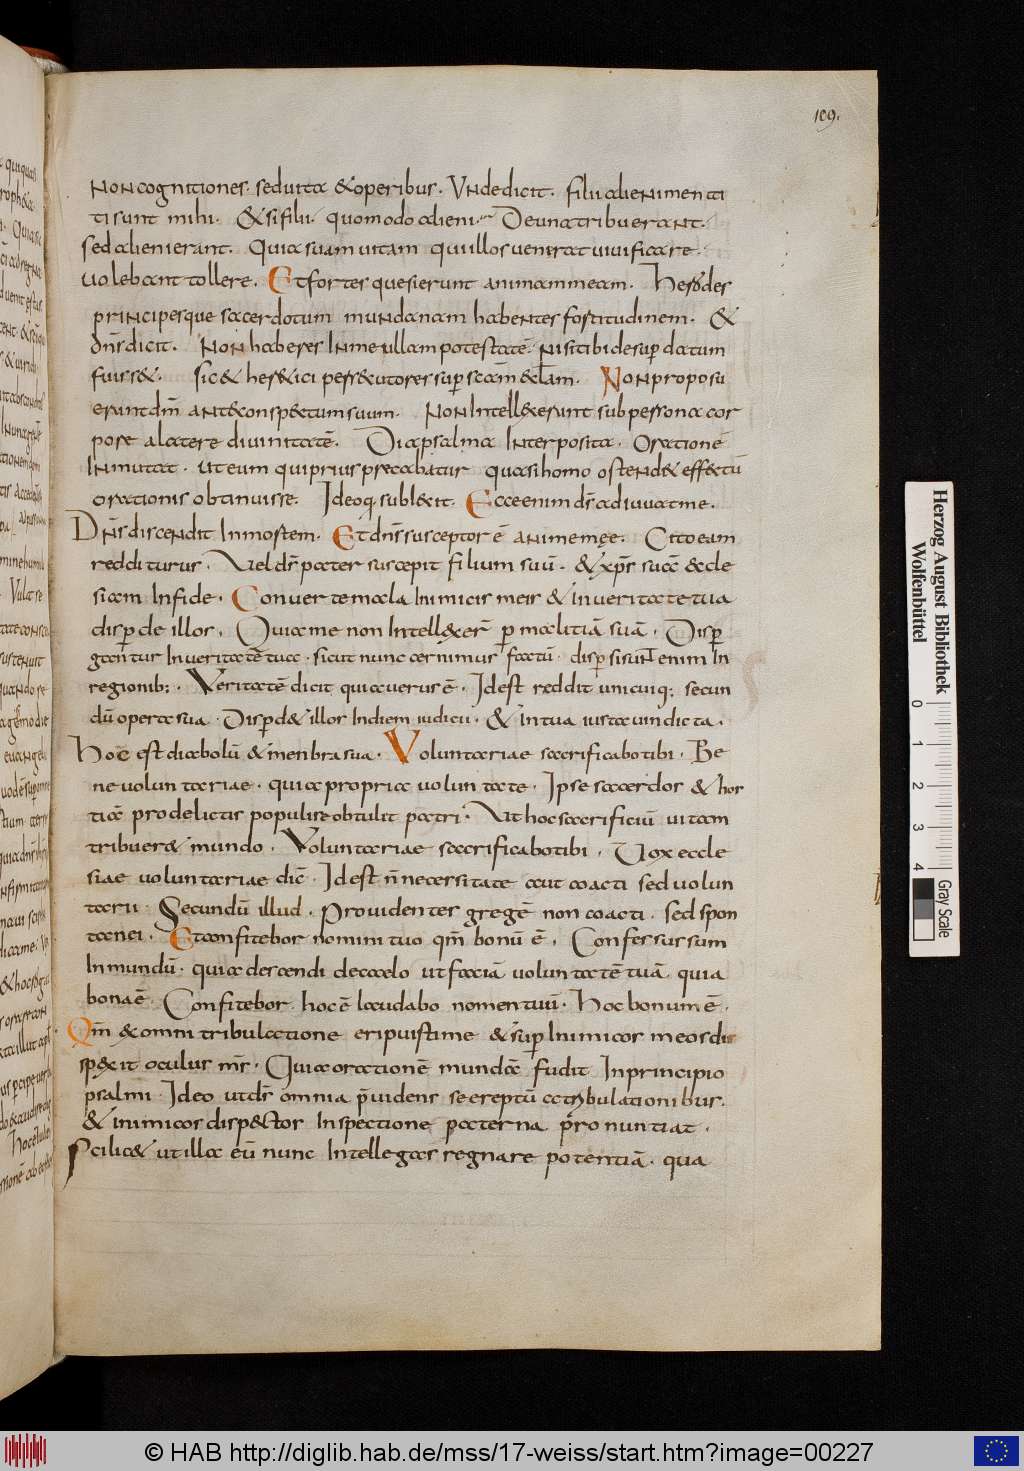 109.
Non cognitiones. sed uita & operibus. Unde dicit. filii alieni menti
ti sunt mihi. & si filii. quomodo alieni. Deuna tribuerant.
sed alieni erant. Quia suam uitam qui illos uenerat uiuificare
uolebant tollere. Et fortes quesierunt animam meam. Herodes
principesque sacerdotum mundanam habentes fortitudinem. &
dn̄s dicit. Non haberes in me ullam potestatē. nisi tibi desuper datum
fuiss&. sic & her&ici pers&utores super scām ecl̄am. Non proposu
erunt dm̄ ante conspectum suum. Non intell&erunt sub persona cor
pore a latere diuinitatē. Diapsalma interposita. Orationē
inmutat. ut eum qui prius precabatur quasi homo ostend& effectū
orationis obtinuisse. Ideoq; subl&it. Ecce enim ds̄ adiuuat me.
Dn̄s discendit in nostem. Et dn̄s susceptor ē animę meę. Cito eam
redditurus. Vel ds̄ pater suscepit filium suū. & xp̄s suā eccle
siam in fide. Conuerte mala inimicis meis & in ueritate tua
disperde illos. Quia me non intell&er̄ p malitiā suā. Disper
gantur in ueritatē tua. sicut nunc cernimus factū. dispersi sunt enim in
regionib;. Veritatē dicit quia uerus ē. Id est reddit unicuiq; secun
dū opera sua. Disperd& illos in diem iudicii. & in tua iusta uindicta.
Hoc est diabolū & menbra sua. Voluntariae sacrificabo tibi. Be
ne uoluntariae. quia propria uoluntate. Ipse sacerdos & hos
tiā pro delictis populi se obtulit patri. Ut hoc sacrificiū uitam
tribuer& mundo. Voluntariae sacrificabo tibi. Vox eccle
siae uoluntariae dic̄. Id est n̄ necessitate aut coacti sed uolun
tarii. Secundū illud. Prouidentes gregē non coacti. sed spon
tanei. Et confitebor nomini tuo qm̄ bonū ē. Confessus sum
in mundū. quia descendi de caelo ut faciā uoluntatē tuā. quia
bona ē. Confitebor hoc ē laudabo nomen tuū. Hoc bonum ē.
Qm̄ ex omni tribulatione eripuisti me & super inimicos meos dis
spexit oculus ms̄. Quia orationē mundā fudit in principio
psalmi. Ideo ut ds̄ omnia p̄uidens se ereptū a tribulationibus.
& inimicos dispector inspectione paterna pronuntiat.
Scilic& ut illa eū nunc intellegas regnare potentiā. qua
Herzog August Bibliothek
Wolfenbüttel
0 1 2 3 4
Gray Scale
© HAB http://diglib.hab.de/mss/17-weiss/start.htm?image=00227